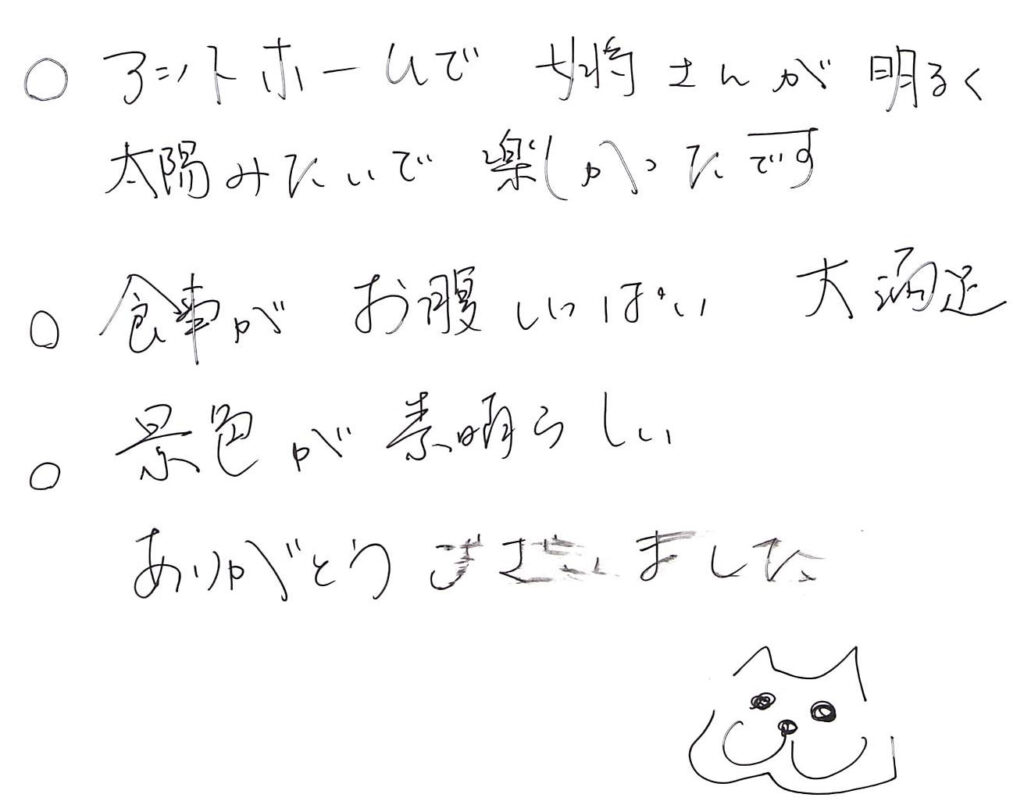 ○ アットホームで 女将さんが 明るく
太陽みたいで 楽しかったです
○ 食事が お腹いっぱい 大満足
○ 景色が 素晴らしい
ありがとうございました